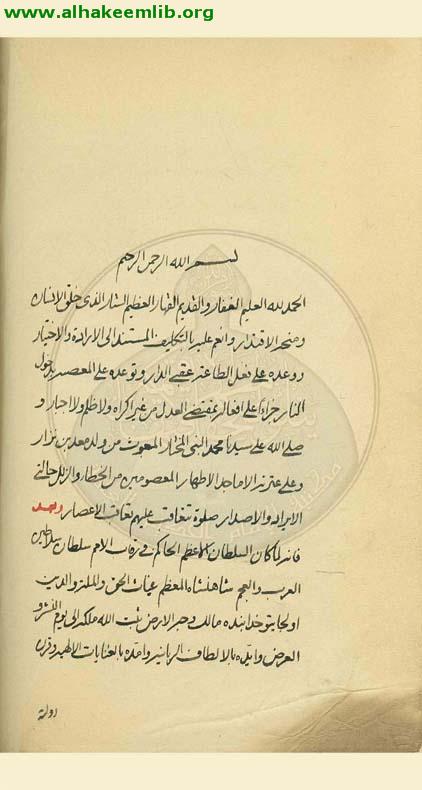 www.alhakeemlib.org
بسم الله الرحمن الرحيم
الحمد لله العليم الغفار والقديم القهار العظيم الستار الذي خلق الانسان
ومنحه الاقتدار وانعم عليه بالتكليف المستند الى الارادة والاختيار
ووعده على فعل الطاعة عقبى الدار وتوعده على المعصية بدخول
النار جزاءا على افعاله بمقتضى العدل من غير اكراه ولا ظلم ولا اجبار و
صلى الله على سيدنا محمد النبي المختار المبعوث من ولد معد بن نزار
وعلى عترته الاماجد الاطهار المعصومين من الخطا والزلل حالتي
الايراد والاصدار صلوة تتعاقب عليهم تعاقب الاعصار وبعد
فانه لما كان السلطان الاعظم الحاكم في رقاب الامم سلطان سلاطين
العرب والعجم شاهنشاه المعظم غياث الحق والملة والدين
اولجايتو خدابنده مالك وجه الارض ثبت الله ملكه الى يوم النشر و
العرض وايده بالالطاف الربانية وامده بالعنايات الالهية وقرن
دولته